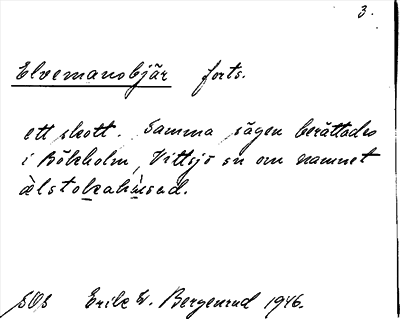 3.
Elvemanobjär forts.
ett skott. Samma sägen berättades
i Bökholm, Vittsjö sn om namnet
SOS Erik W. Bergenrud 1946.